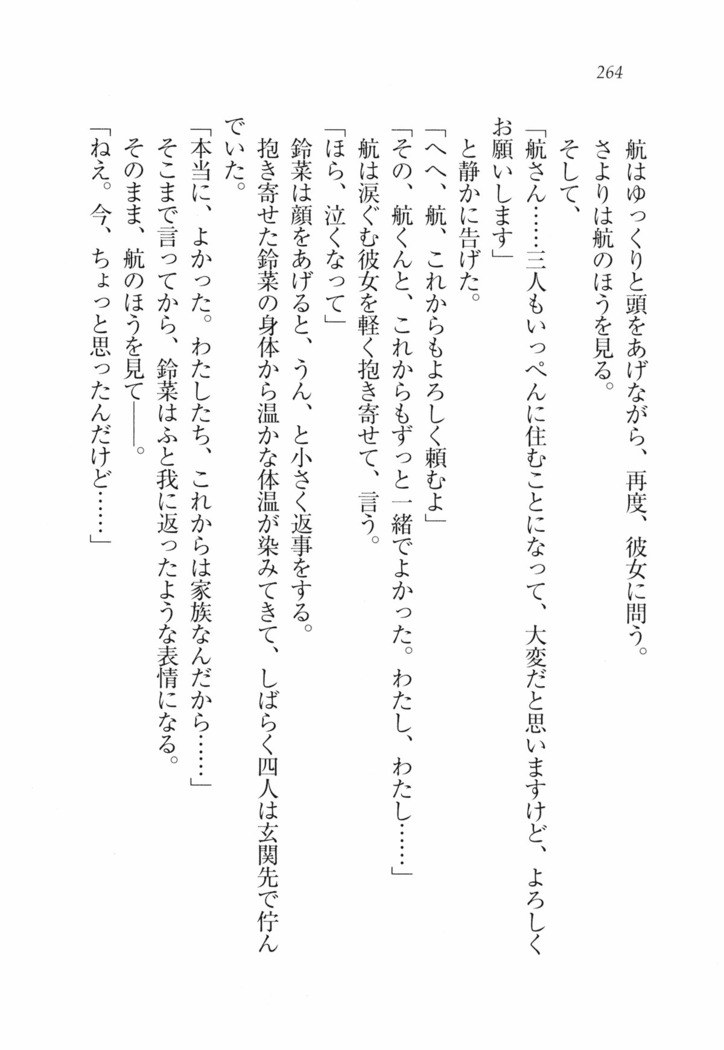 264
航はゆっくりと頭をあげながら、再度、彼女に問う。
さよりは航のほうを見る。
そして、
「航さん……三人もいっぺんに住むことになって、大変だと思いますけど、よろしく
お願いします」
と静かに告げた。
「へへ、航、これからもよろしく頼むよ」
「その、航くんと、これからもずっと一緒でよかった。わたし、わたし……」
航は涙ぐむ彼女を軽く抱き寄せて、言う。
「ほら、泣くなって」
鈴菜は顔をあげると、うん、と小さく返事をする。
抱き寄せた鈴菜の身体から温かな体温が染みてきて、しばらく四人は玄関先で佇ん
でいた。
「本当に、よかった。わたしたち、これからは家族なんだから……」
そこまで言ってから、鈴菜はふと我に返ったような表情になる。
そのまま、航のほうを見て――。
「ねえ。今、ちょっと思ったんだけど……」